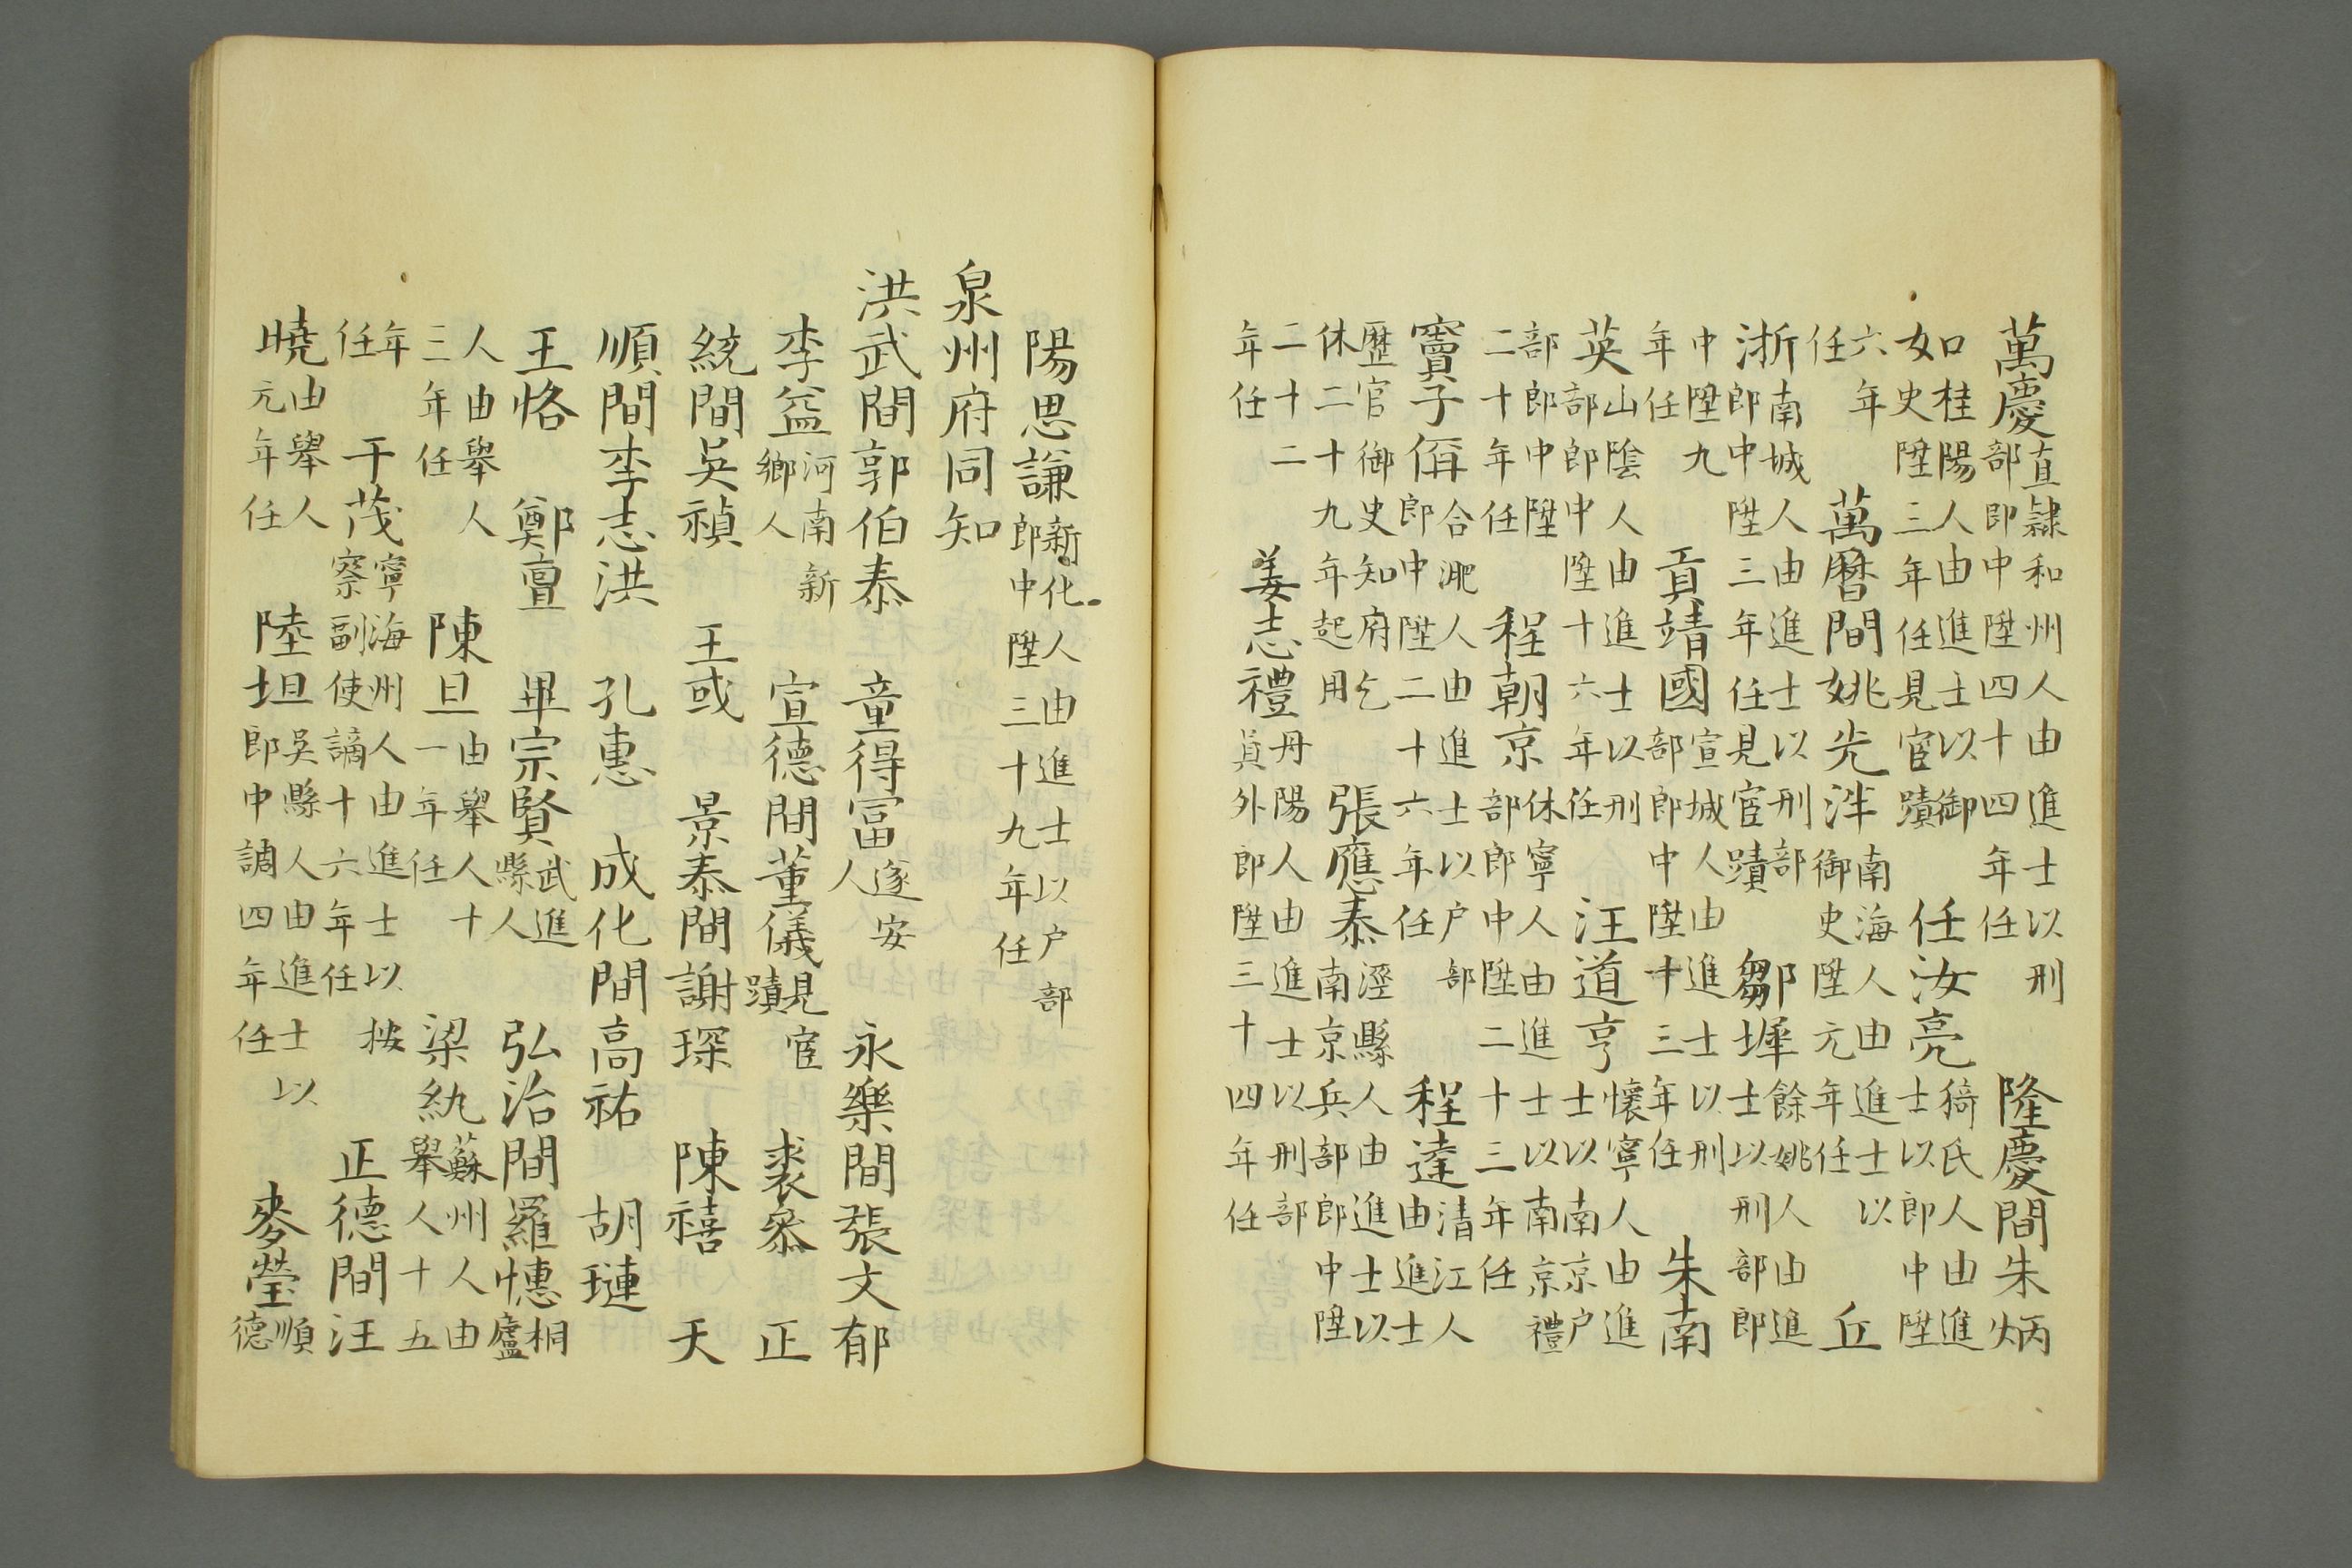 萬慶直隸和州人由進士以刑部郎中陞四十四年任　隆慶間朱炳
如桂陽人由進士以御史陞三年任見宦蹟　任汝亮猗氏人由進士以郎中陞
六年任　萬曆間姚光泮南海人由進士以御史陞元年任　丘
浙南城人由進士以刑部郎中陞三年任見宦蹟　鄒墀餘姚人由進士以刑部郎
中陞九年任　貢靖國宣城人由進士以刑部郎中陞十三年任　朱南
英山陰人由進士以刑部郎中陞十六年任　汪道亨懷寧人由進士以南京户
部郎中陞二十年任　程朝京休寧人由進士以南京禮部郎中陞二十三年任
竇子偁合淝人由進士以户部郎中陞二十六年任　程達清江人由進士
歷官御史知府乞休二十九年起用　張應泰涇縣人由進士以南京兵部郎中陞
二十二年任　姜志禮丹陽人由進士以刑部員外郎陞三十四年任
陽思謙新化人由進士以户部郎中陞三十九年任
泉州府同知
洪武間郭伯泰　童得冨遂安人　永樂間張文郁
李益河南新鄉人　宣德間董儀見宦蹟　裘㕘　正
統間吳禎　王或　景泰間謝琛　陳禧　天
順間李志洪　孔惠　成化間高祐　胡璉
王恪　鄭亶　畢宗賢武進縣人　弘治間羅憓桐廬
人由舉人三年任　陳旦由舉人十一年任　梁紈蘇州人由舉人十五
年任　干茂寧海州人由進士以按察副使謫十六年任　正德間汪
曉由舉人元年任　陸坦吳縣人由進士以郎中調四年任　麥瑩順德